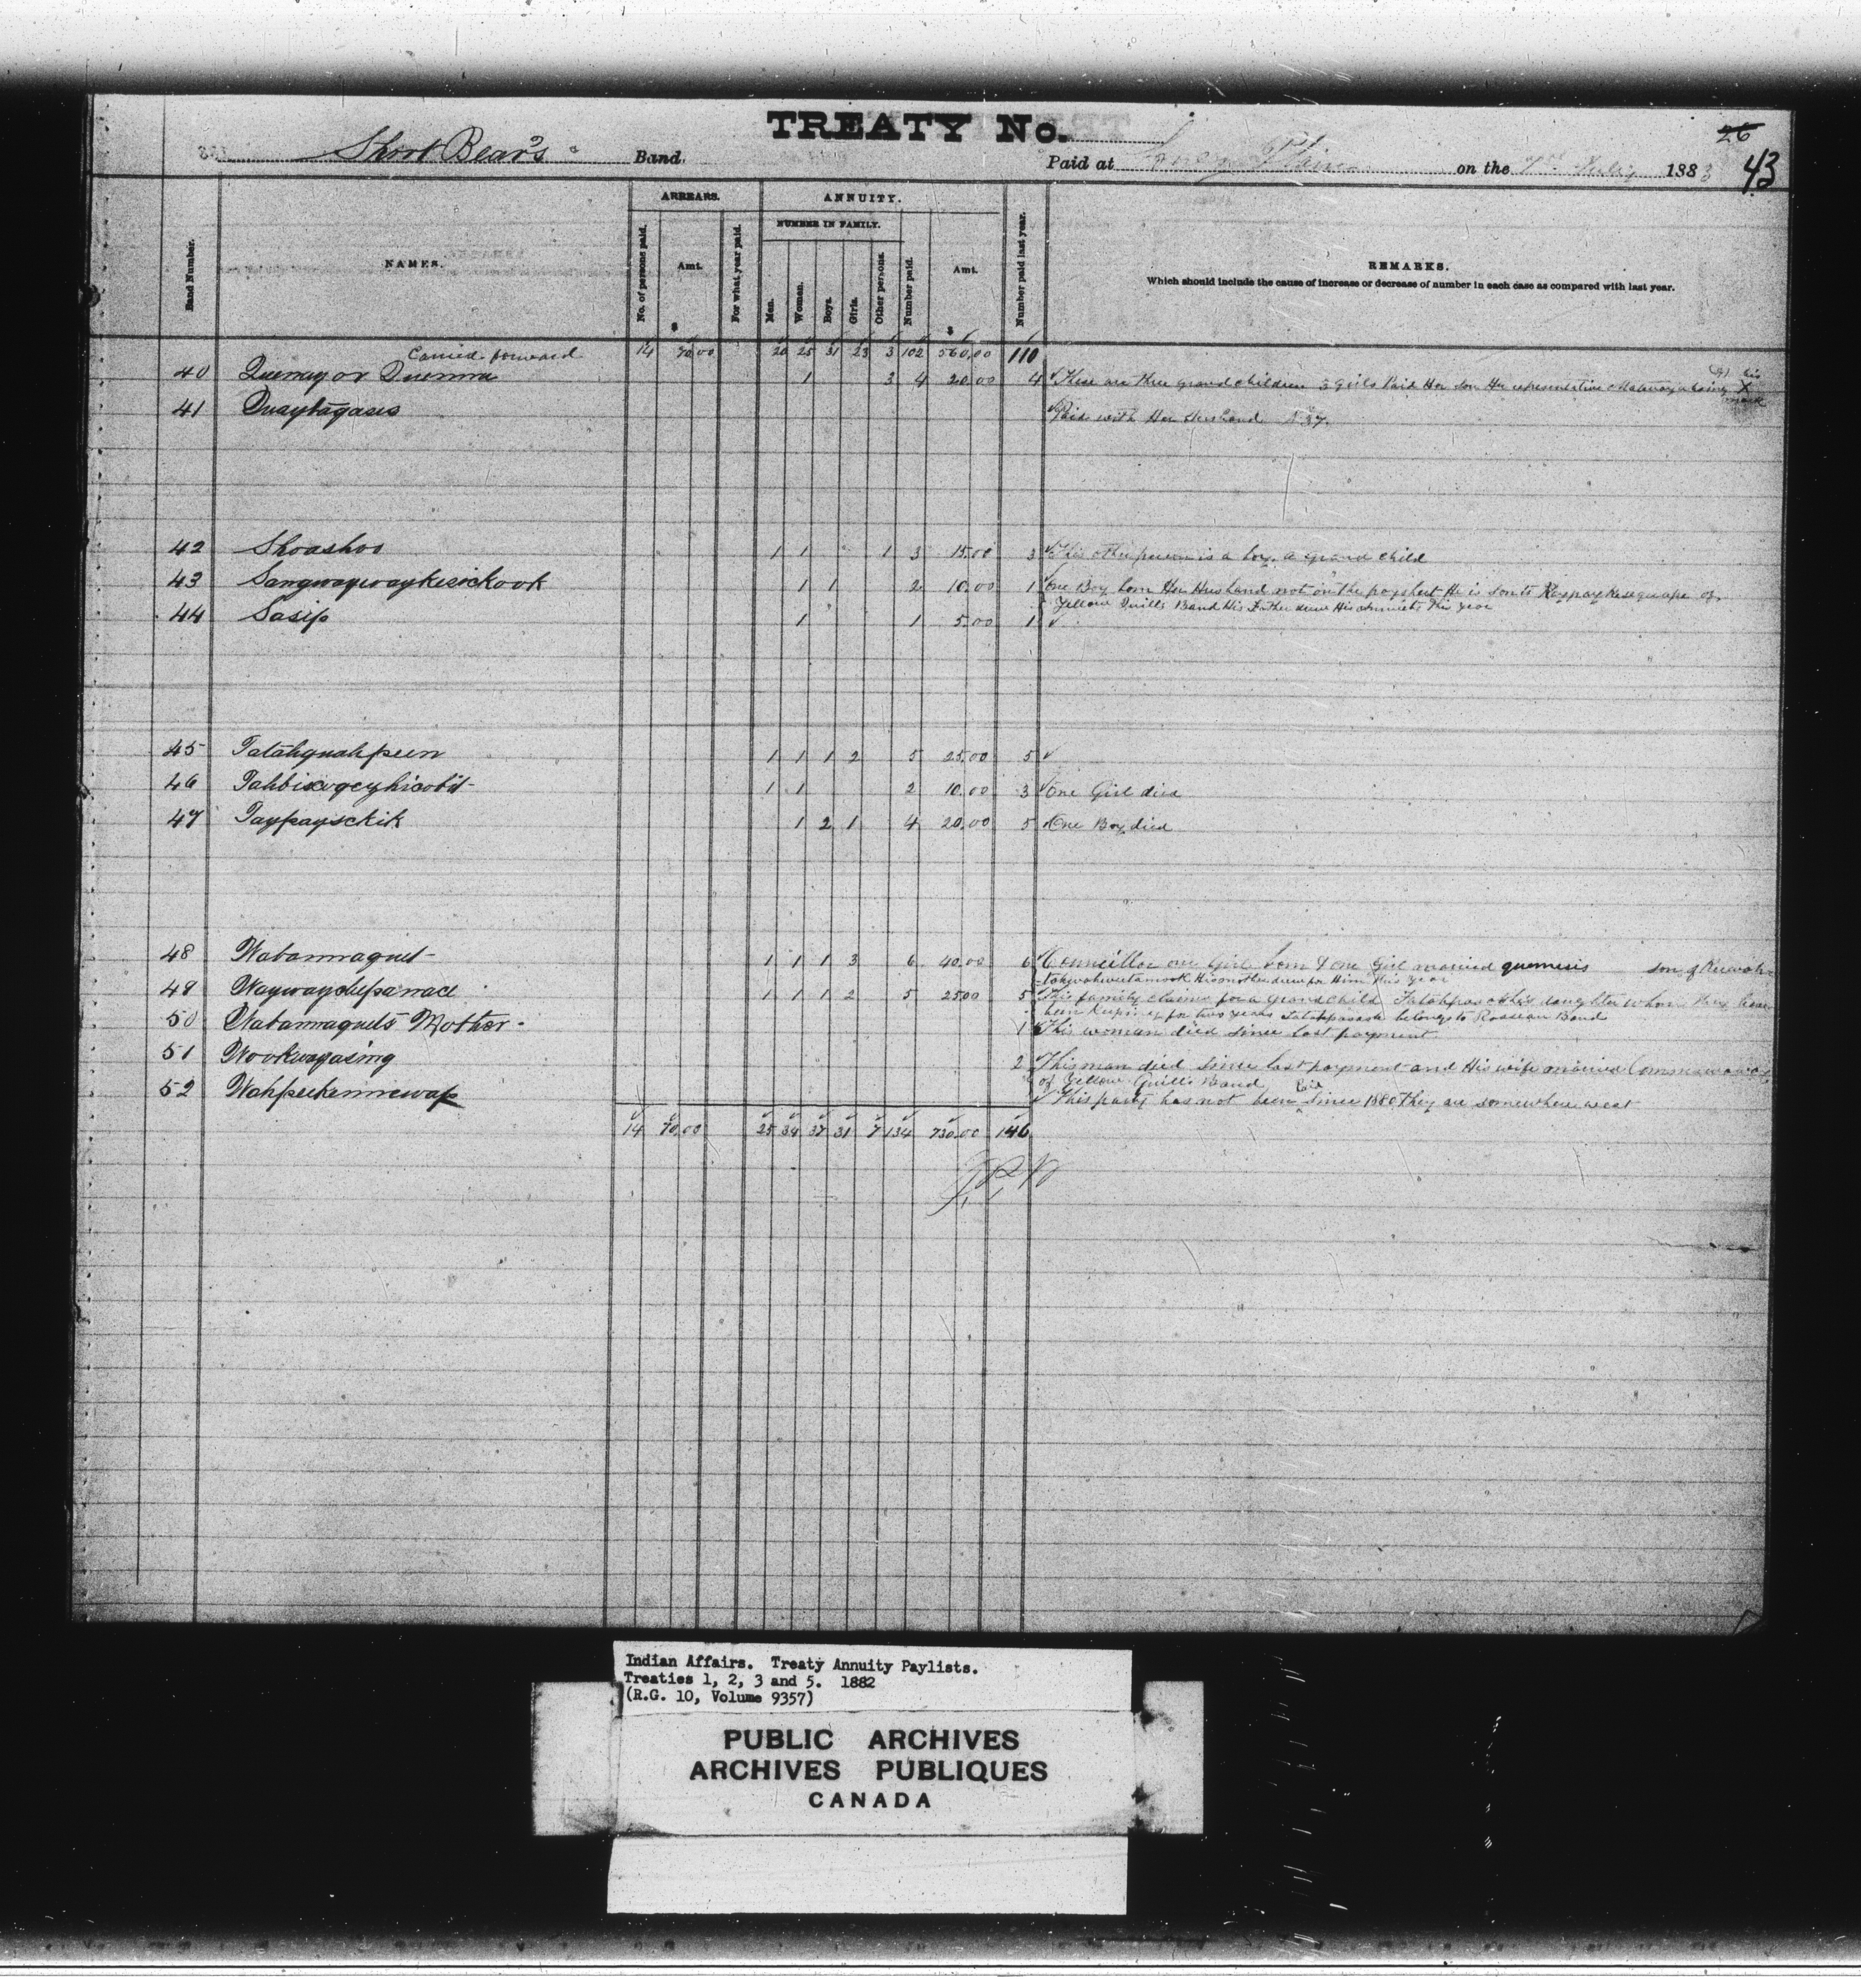 TREATY No.
26
Short Bear's Band. Paid at Long Plain on the July 1883 43
Band Number. NAMES. ARREARS. No. of persons paid. Amt. $ For what year paid. ANNUITY. NUMBER IN FAMILY. Men. Women. Boys. Girls. Other persons. Number paid. Amt. $ Number paid last year. REMARKS.
Which should include the cause of increase or decrease of number in each case as compared with last year.
Carried forward 14 70.00 20 25 31 23 3 102 560.00 110
40 Quemay or Quemma 1 3 4 20.00 4 These are three grand children 3 Girls Paid Her son Her representative his X mark
41 Quaytagasis Paid with Her Husband N 37.
42 Shoashoo 1 1 1 3 15.00 3 This other person is a boy. a grand child
43 Sangwaywaykesickook 1 1 2 10.00 1 One Boy born Her Husband not on the paysheet He is son to of
Yellow Quills Band His Father drew His annuity this year
44 Sasip 1 1 5.00 1
45 Tatahquahpeen 1 1 1 2 5 25.00 5
46 1 1 2 10.00 3 One Girl died
47 Taypayschik 1 2 1 4 20.00 5 One Boy died
48 Wabanmaquet 1 1 1 3 6 40.00 6 Councillor one Girl born & one Girl married quemesis son of
His mother drew for Him this year
49 1 1 1 2 5 25.00 5 This family claims for a grand child daughter whom they have
been keeping for two years belongs to Rosseau Band
50 Wabanmaquets Mother 1 This woman died since last payment
51 Wookwayasing 2 This man died since last payment and His wife married
of Yellow Quills Band
52 Wahpeekenniewap This party has not been Pd since 1880 They are somewhere west
14 70.00 25 34 37 31 7 134 730.00 146
Indian Affairs. Treaty Annuity Paylists.
Treaties 1, 2, 3 and 5. 1882
(R.G. 10, Volume 9357)
PUBLIC ARCHIVES
ARCHIVES PUBLIQUES
CANADA